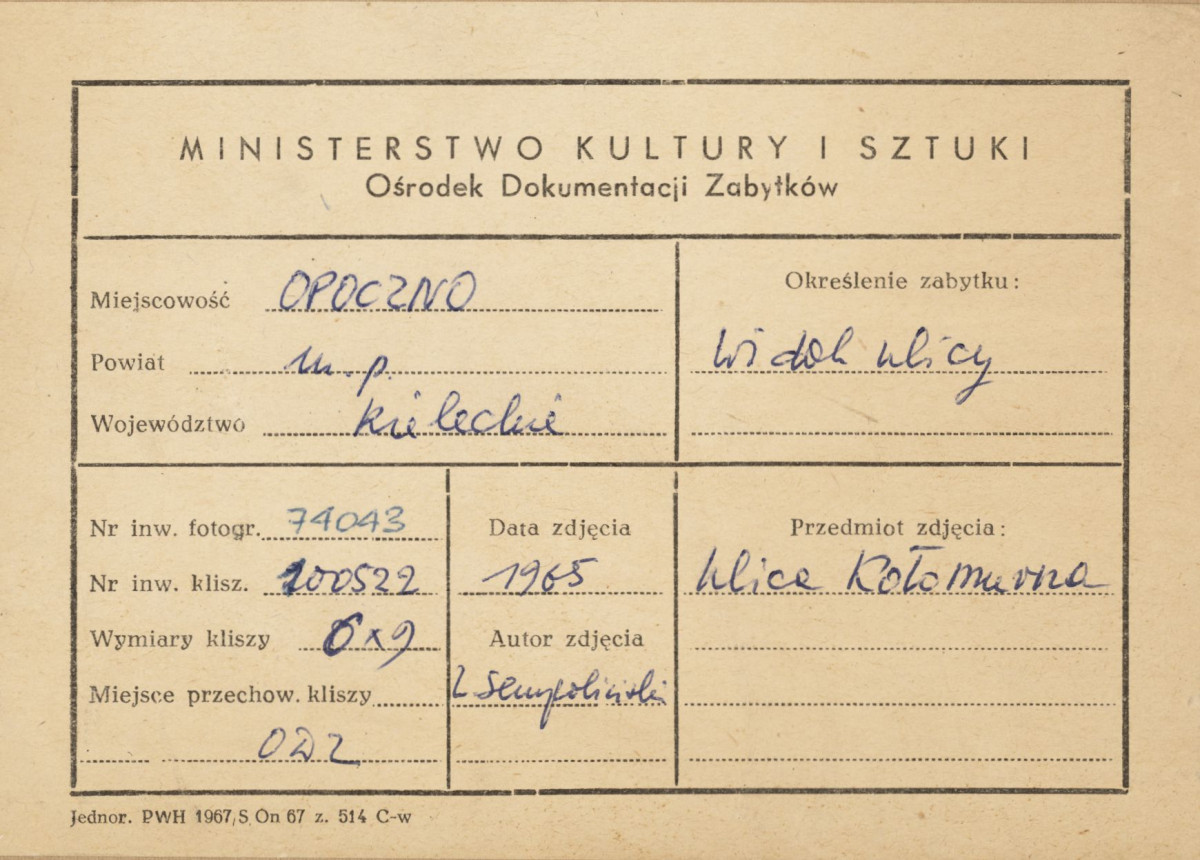 MINISTERSTWO KULTURY I SZTUKI
Ośrodek Dokumentacji Zabytków
Miejscowość OPOCZNO
Powiat m.p.
Województwo kieleckie
Określenie zabytku:
Widok ulicy
Nr inw. fotogr. 74043
Nr inw. klisz. 200522
Wymiary kliszy 6x9
Miejsce przechow. kliszy
ODZ
Data zdjęcia
1965
Autor zdjęcia
L Sempoliński
Przedmiot zdjęcia:
Ulica Kołomurna
Jednor. PWH 1967, S On 67 z. 514 C-w